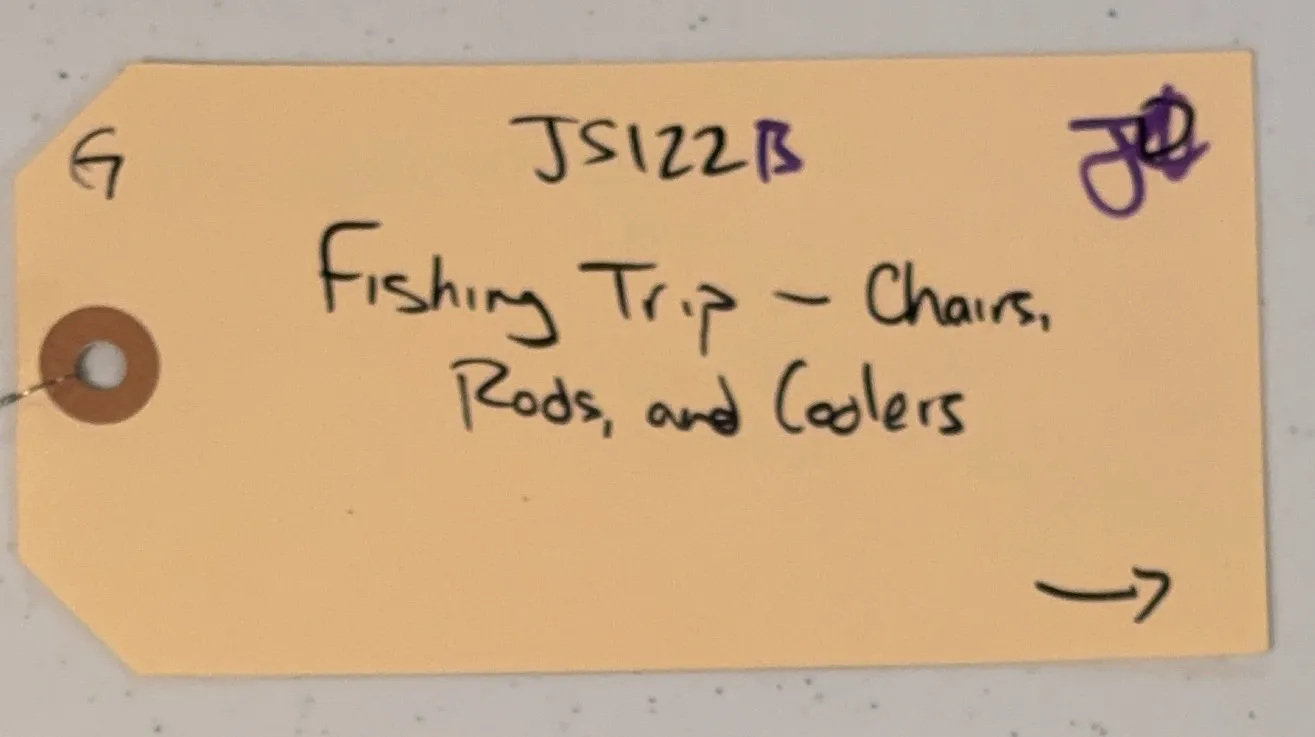 G
JS122B
Fishing Trip – Chairs,
Rods, and Coolers
→